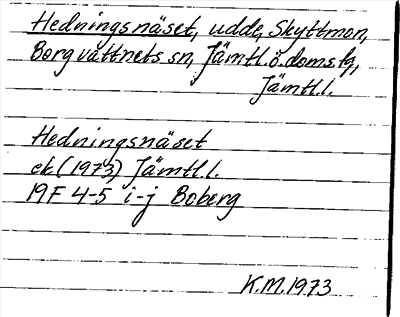 Hedningsnäset, udde, Skyttmon,
Borgvattnets sn, Jämtl.ö.domsfg,
Jämtl.l.
Hedningsnäset
ek (1973) Jämtl.l.
19F 4-5 i-j Boberg
K.M.1973